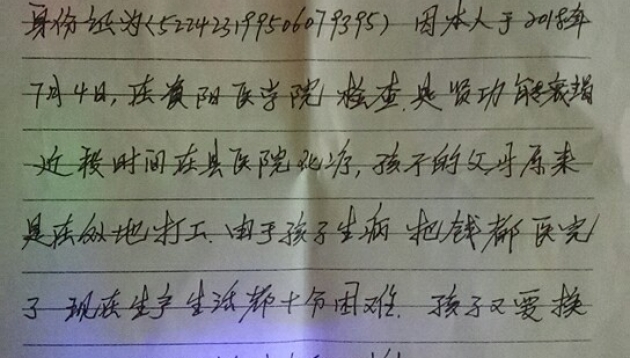 身份证为(522423199506079395) 因本人于2018年
7月4日,在贵阳医学院检查.是肾功能衰竭
近段时间在县医院化疗,孩子的父母原来
是在外地打工.由于孩子生病 把钱都医完
了 现在生产生活都十分困难.孩子又要换